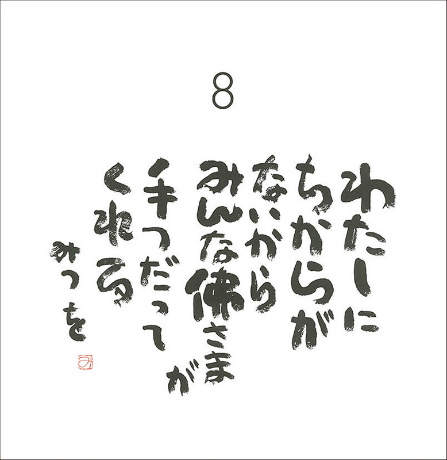 8
わたしに
ちからが
ないから
みんな佛さまが
手つだって
くれる
みつを